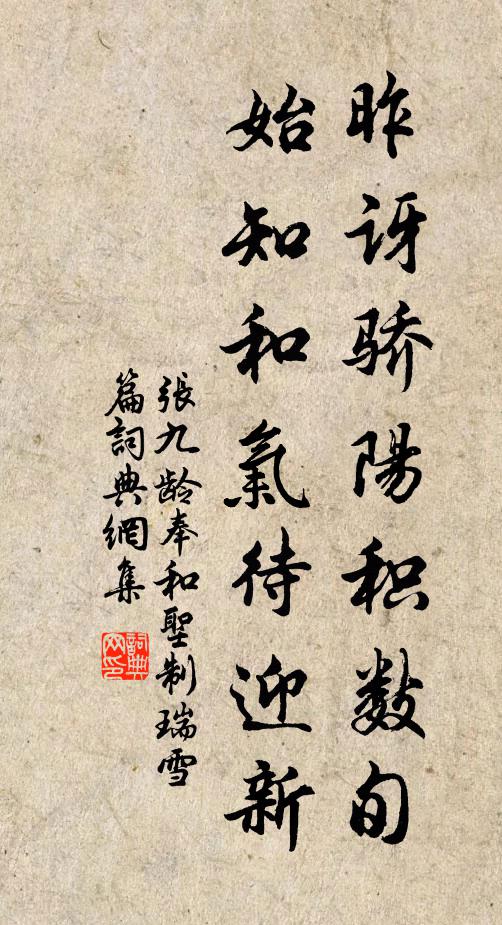 昨讶骄陽积数旬
始知和氣待迎新
張九龄奉和聖制瑞雪
篇詞典網集
詞典
网印